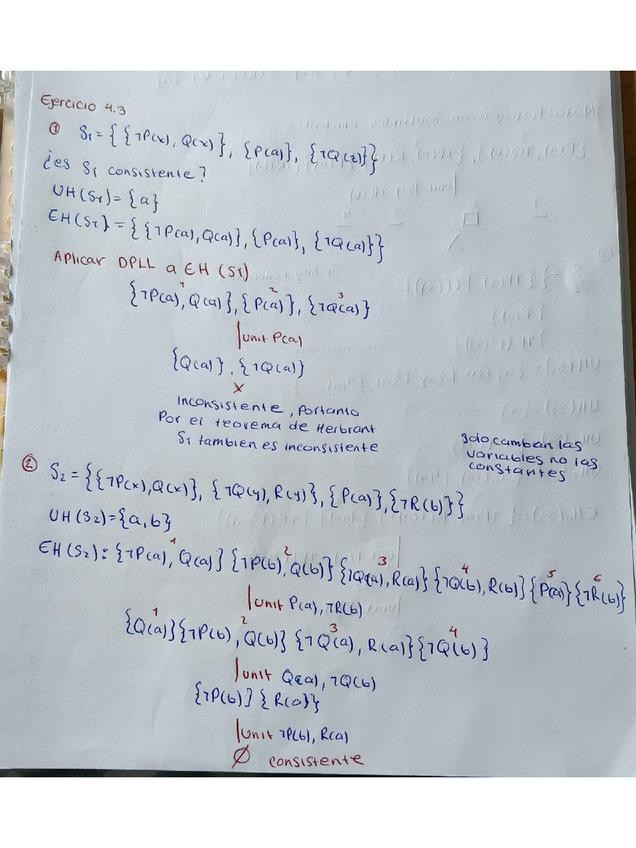 Ejercicio 4.3
① S1 = { {¬P(x), Q(x)}, {P(a)}, {¬Q(z)}}
¿es S1 consistente?
UH(S1) = {a}
EH(S1) = {{¬P(a), Q(a)}, {P(a)}, {¬Q(a)}}
Aplicar DPLL a EH(S1)
1 2 3
{¬P(a), Q(a)}, {P(a)}, {¬Q(a)}
|unit P(a)
{Q(a)}, {¬Q(a)}
x
Inconsistente, Portanto
Por el teorema de Herbrant
S1 tambien es inconsistente
solo cambian las
variables no las
constantes
② S2 = {{¬P(x), Q(x)}, {¬Q(y), R(y)}, {P(a)}, {¬R(b)}}
UH(S2) = {a,b}
1 2 3 4 5 6
EH(S2): {¬P(a), Q(a)} {¬P(b), Q(b)} {¬Q(a), R(a)} {¬Q(b), R(b)} {P(a)} {¬R(b)}
|unit P(a), ¬R(b)
1 2 3 4
{Q(a)} {¬P(b), Q(b)} {¬Q(a), R(a)} {¬Q(b)}
|unit Q(a), ¬Q(b)
{¬P(b)} {R(a)}
|unit ¬P(b), R(a)
∅ consistente